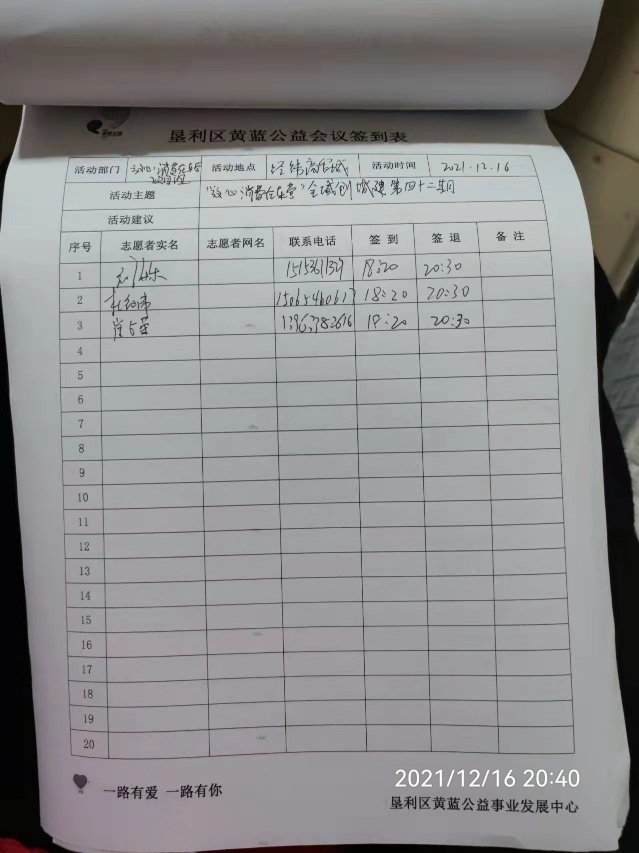 垦利区黄蓝公益会议签到表
活动部门 活动地点 经纬商贸城 活动时间 2021.12.16
活动主题 "放心消费在东营"全域创城建第四十二期
活动建议
序号 志愿者实名 志愿者网名 联系电话 签到 签退 备注
1 18:20 20:30
2 15065460617 18:20 20:30
3 13963782616 18:20 20:30
4
5
6
7
8
9
10
11
12
13
14
15
16
17
18
19
20
一路有爱 一路有你
2021/12/16 20:40
垦利区黄蓝公益事业发展中心